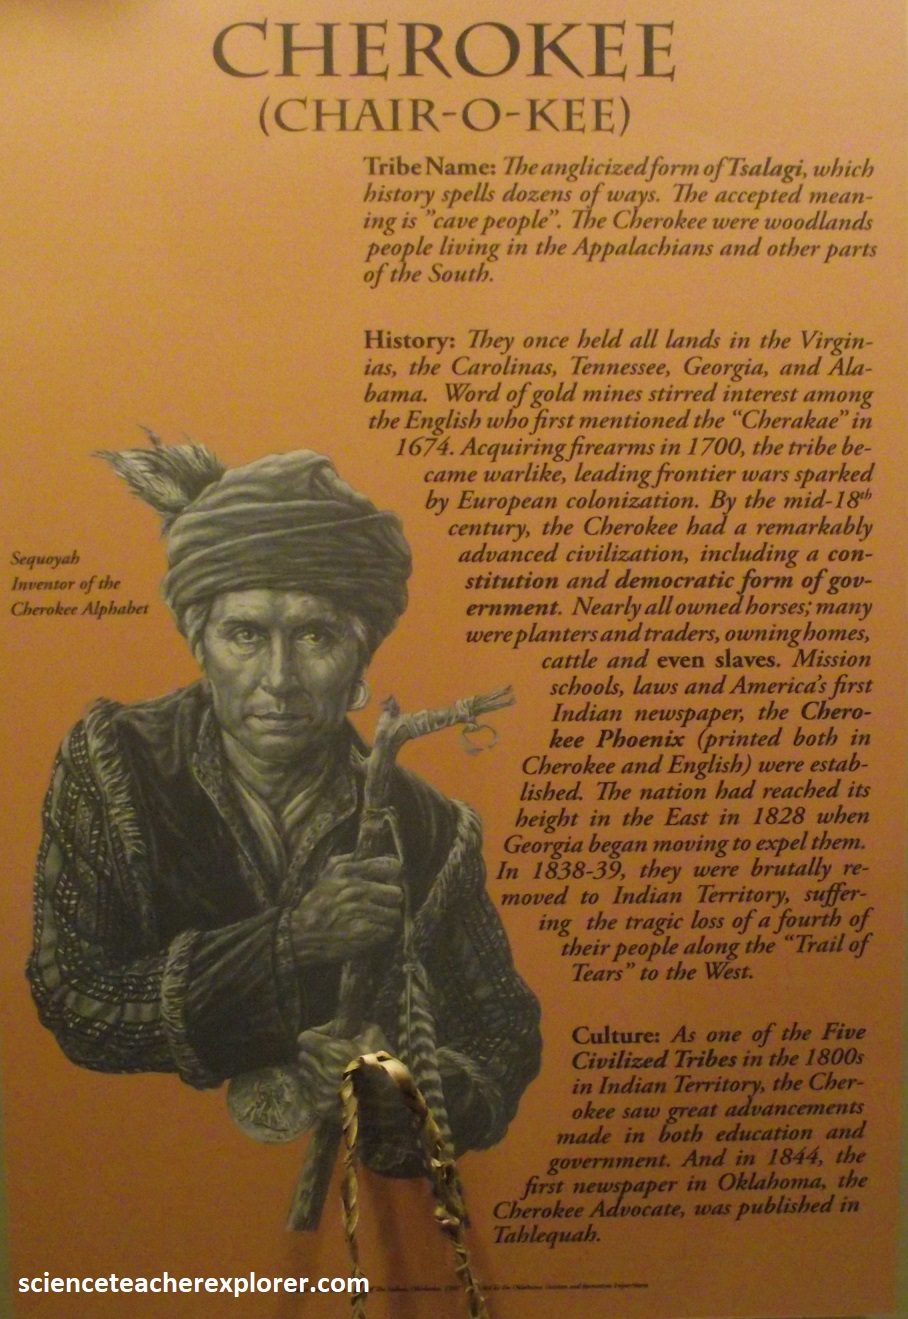 CHEROKEE
(CHAIR-O-KEE)
Tribe Name: The anglicized form of Tsalagi, which
history spells dozens of ways. The accepted mean-
ing is "cave people". The Cherokee were woodlands
people living in the Appalachians and other parts
of the South.
History: They once held all lands in the Virgin-
ias, the Carolinas, Tennessee, Georgia, and Ala-
bama. Word of gold mines stirred interest among
the English who first mentioned the “Cherakae” in
1674. Acquiring firearms in 1700, the tribe be-
came warlike, leading frontier wars sparked
by European colonization. By the mid-18th
century, the Cherokee had a remarkably
advanced civilization, including a con-
stitution and democratic form of gov-
ernment. Nearly all owned horses; many
were planters and traders, owning homes,
cattle and even slaves. Mission
schools, laws and America's first
Indian newspaper, the Chero-
kee Phoenix (printed both in
Cherokee and English) were estab-
lished. The nation had reached its
height in the East in 1828 when
Georgia began moving to expel them.
In 1838-39, they were brutally re-
moved to Indian Territory, suffer-
ing the tragic loss of a fourth of
their people along the “Trail of
Tears” to the West.
Sequoyah
Inventor of the
Cherokee Alphabet
Culture: As one of the Five
Civilized Tribes in the 1800s
in Indian Territory, the Cher-
okee saw great advancements
made in both education and
government. And in 1844, the
first newspaper in Oklahoma, the
Cherokee Advocate, was published in
Tahlequah.
scienceteacherexplorer.com